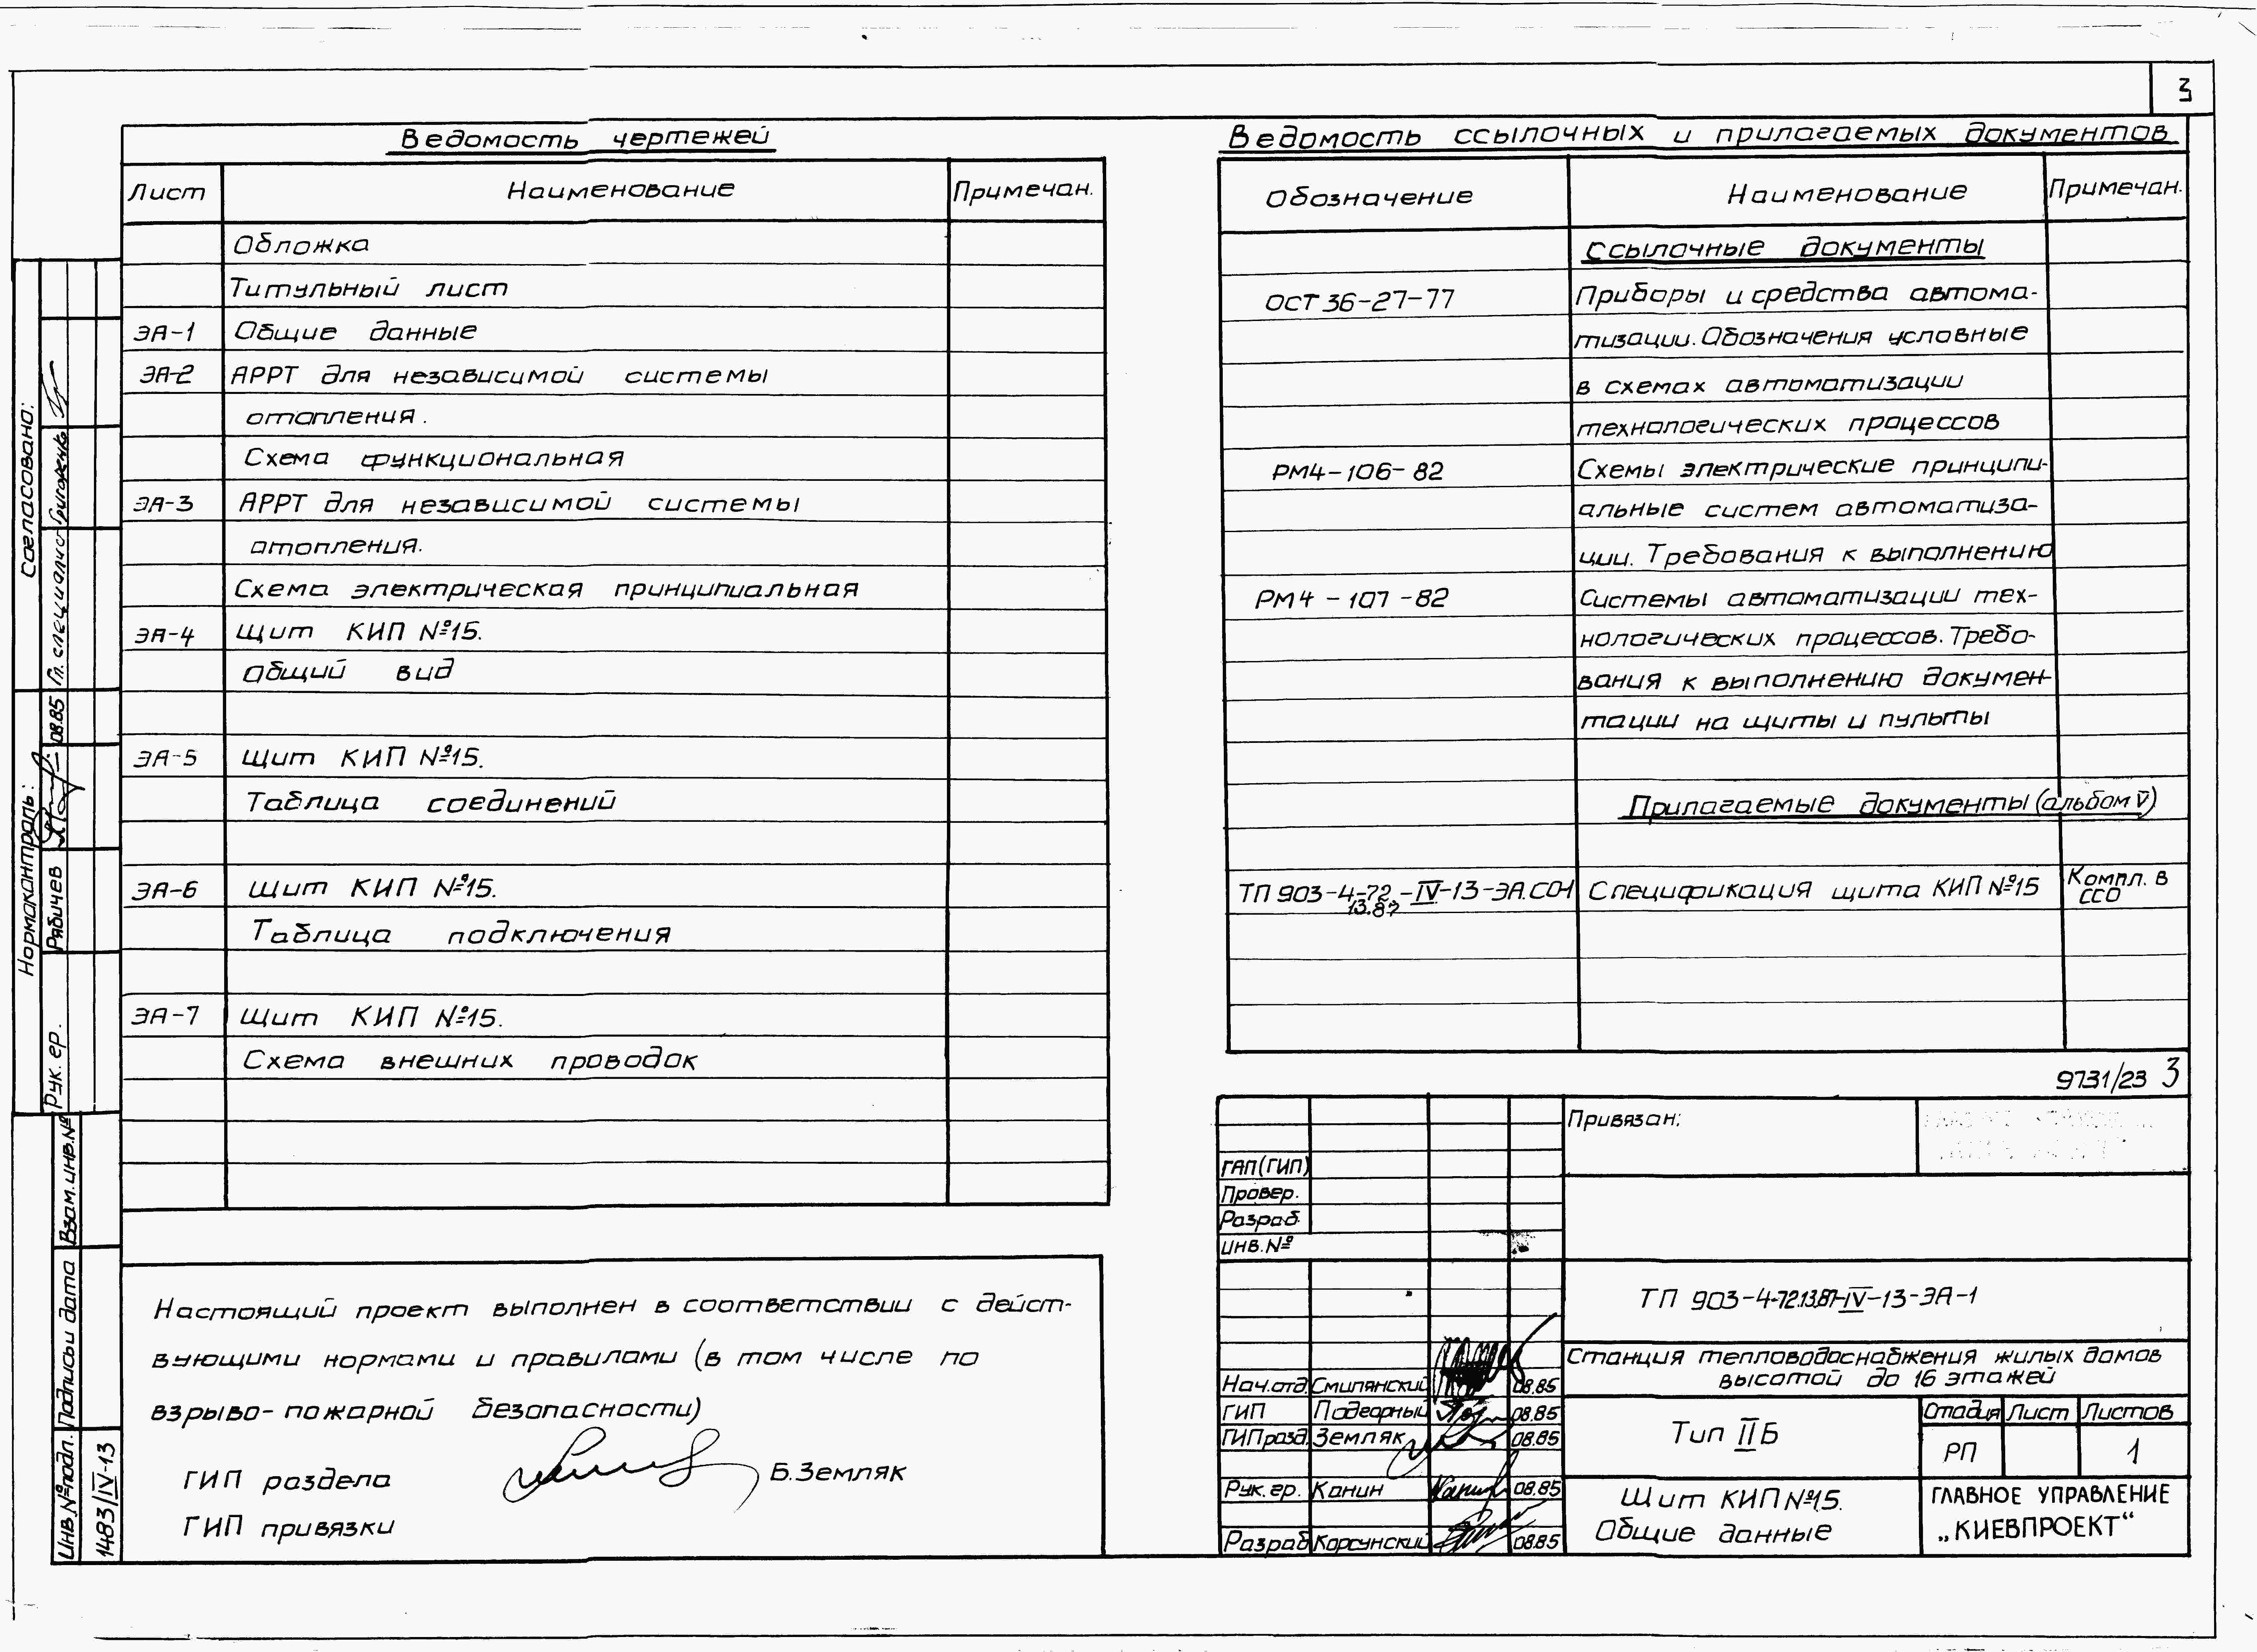 3
Ведомость чертежей
Лист Наименование Примечан.
Обложка
Титульный лист
ЭА-1 Общие данные
ЭА-2 АРРТ для независимой системы
отопления.
Схема функциональная
ЭА-3 АРРТ для независимой системы
отопления.
Схема электрическая принципиальная
ЭА-4 Щит КИП №15.
Общий вид
ЭА-5 Щит КИП №15.
Таблица соединений
ЭА-6 Щит КИП №15.
Таблица подключения
ЭА-7 Щит КИП №15.
Схема внешних проводок
Ведомость ссылочных и прилагаемых документов
Обозначение Наименование Примечан.
Ссылочные документы
ОСТ 36-27-77 Приборы и средства автома-
тизации. Обозначения условные
в схемах автоматизации
технологических процессов
РМ4-106-82 Схемы электрические принципи-
альные систем автоматиза-
ции. Требования к выполнению
РМ4-107-82 Системы автоматизации тех-
нологических процессов. Требо-
вания к выполнению докумен-
тации на щиты и пульты
Прилагаемые документы (альбом V)
ТП 903-4-72.-IV-13-ЭА.СО1 Спецификация щита КИП №15 Компл. в
13.87 ССО
9731/23 3
Настоящий проект выполнен в соответствии с дейст-
вующими нормами и правилами (в том числе по
взрыво-пожарной безопасности)
ГИП раздела Б.Земляк
ГИП привязки
Привязан:
ГАП(ГИП)
Провер.
Разраб.
Инв.№
ТП 903-4-72.13.87-IV-13-ЭА-1
Станция тепловодоснабжения жилых домов
высотой до 16 этажей
Нач.отд. Смилянский 08.85
ГИП Подгорный 08.85
ГИП разд. Земляк 08.85
Рук. гр. Канин 08.85
Разраб. Корсунский 08.85
Тип II Б
Стадия Лист Листов
РП 1
Щит КИП №15.
Общие данные
ГЛАВНОЕ УПРАВЛЕНИЕ
„КИЕВПРОЕКТ“
Согласовано:
Гл. специалист Григоренко
Нормоконтроль:
Рук. гр. Рябичев 08.85
Взам.инв.№
Подпись и дата
Инв.№ подл.
1483/IV-13